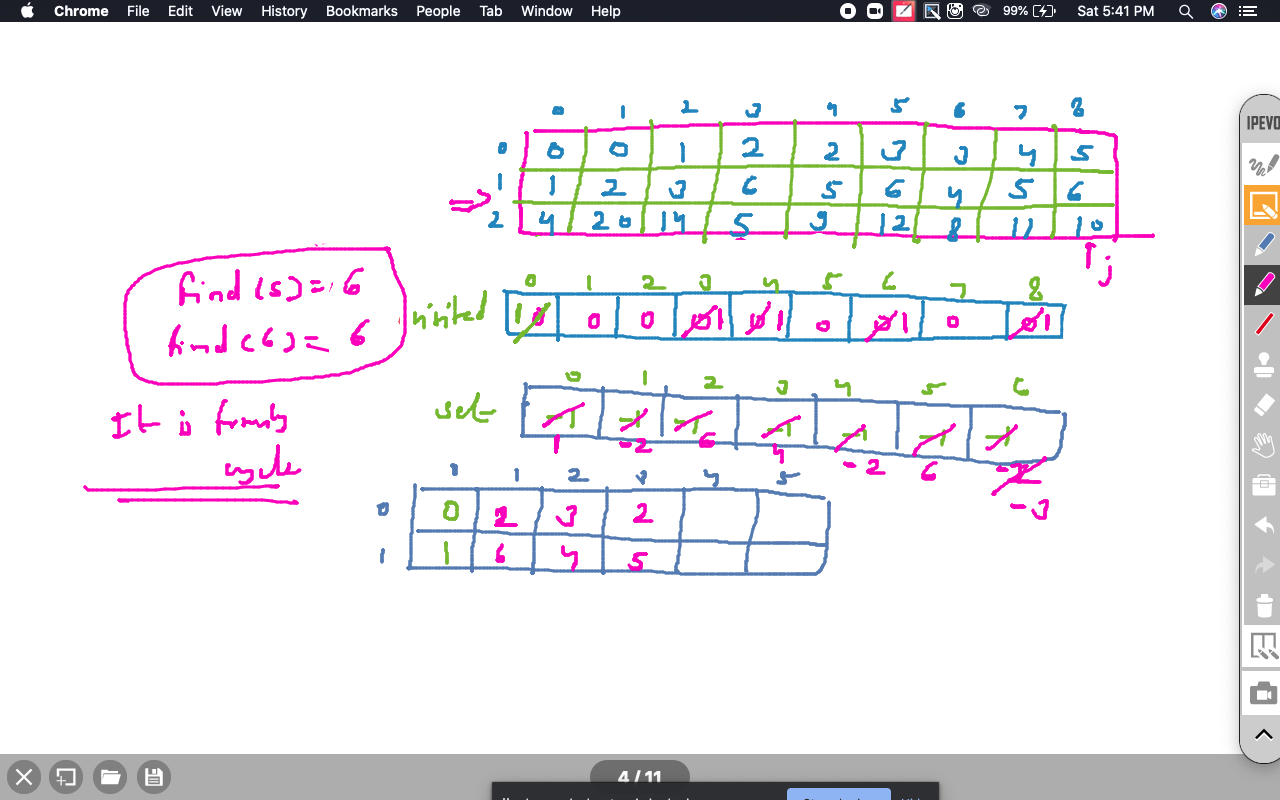 Chrome File Edit View History Bookmarks People Tab Window Help 99% Sat 5:41 PM
IPEVO
0 1 2 3 4 5 6 7 8
0 0 0 1 2 2 3 3 4 5
1 1 2 3 6 5 6 4 5 6
⇒
2 4 20 14 5 9 12 8 11 10
j
find(5)=6
find(6)=6
0 1 2 3 4 5 6 7 8
1 0 0 0 0 1 0 1 0 0 1 0 0 1
It is
cycle
0 1 2 3 4 5 6
set -1 -1 -1 -1 -1 -1 -1
1 -2 6 4 -2 6 -2
-3
1 2 3 4 5
0 0 2 3 2
1 1 6 4 5
4 / 11